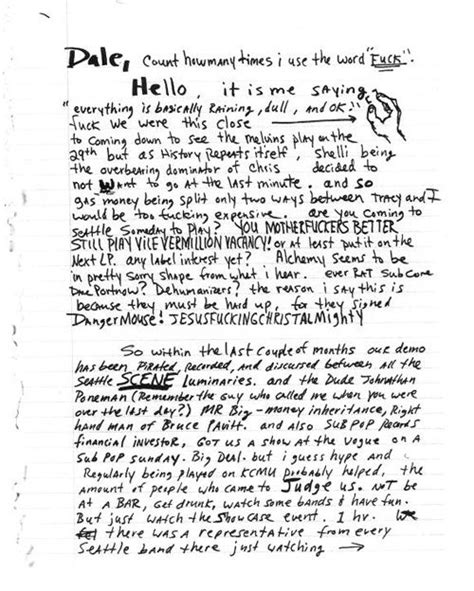 Dale, Count how many times i use the word "Fuck".
Hello, it is me saying
"everything is basically Raining, dull, and OK."
fuck we were this close
to coming down to see the melvins play on the
29th but as History Repeats itself, shelli being
the overbearing dominator of Chris decided to
not want to go at the last minute. and so
gas money being split only two ways between TRACY and I
would be too fucking expensive. are you coming to
Seattle Someday to Play? YOU MOTHERFUCKERS BETTER
STILL PLAY VILE VERMILLION VACANCY! or at least put it on the
Next LP. any label interest yet? Alchemy seems to be
in pretty sorry shape from what i hear. ever RAT Subcore
Portnow? Dehumanizers? the reason i say this is
because they must be hard up, for they signed
DangerMouse! JESUSFUCKINGCHRISTALMIGHTY
So within the last couple of months our demo
has been PIRATED, Recorded, and discussed between all the
Seattle SCENE Luminaries. and the Dude Johnathan
Poneman (Remember the guy who called me when you were
over the last day?) MR Big-money inheritance, Right
hand man of Bruce Pavitt. and also SUB POP Records
financial investor, GOT US a show at the Vogue on A
SUB POP SUNDAY. Big Deal. but i guess hype and
Regularly being played on KCMU probably helped, the
amount of people who came to Judge us. NOT be
at a BAR, Get drunk, watch some bands & have fun.
But just watch the Showcase event. 1 hr.
there was a representative from every
Seattle band there just watching →